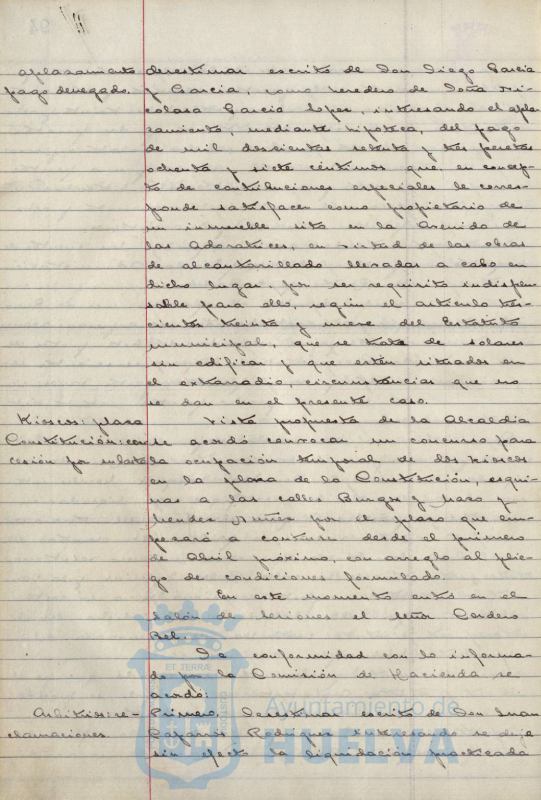 aplazamiento desestimar escrito de Don Diego Garcia
pago denegado. y Garcia, como heredero de Doña Ni-
colasa Garcia Lopez, interesando el apla-
zamiento, mediante hipoteca, del pago
de mil doscientas setenta y tres pesetas
ochenta y siete céntimos que, en concep-
to de contribuciones especiales le corres-
ponde satisfacer como propietario de
un inmueble sito en la Avenida de
las Adoratrices, en virtud de las obras
de alcantarillado llevadas a cabo en
dicho lugar, por ser requisito indispen
sable para ello, según el artículo tres-
cientos treinta y nueve del Estatuto
municipal, que se trate de solares
sin edificar y que estén situados en
el extrarradio, circunstancias que no
se dan en el presente caso.
Kioscos: plaza Vista propuesta de la Alcaldía
Constitución: con se acordó convocar un concurso para
cesión por subasta la ocupación temporal de dos kioscos
en la plaza de la Constitución, esqui-
nas a las calles Burgos y Mazo y
Mendez Nuñez por el plazo que em-
pezará a contarse desde el primero
de Abril próximo, con arreglo al plie-
go de condiciones formulado.
En este momento entró en el
salón de sesiones el señor Cordero
Bel.
De conformidad con lo informa-
do por la Comisión de Hacienda se
acordó:
Arbitrios: re- Primero. Desestimar escrito de Don Juan
clamaciones Caparros Rodriguez interesando se deje
sin efecto la liquidación practicada
ET TERRÆ
Ayuntamiento de
HUELVA